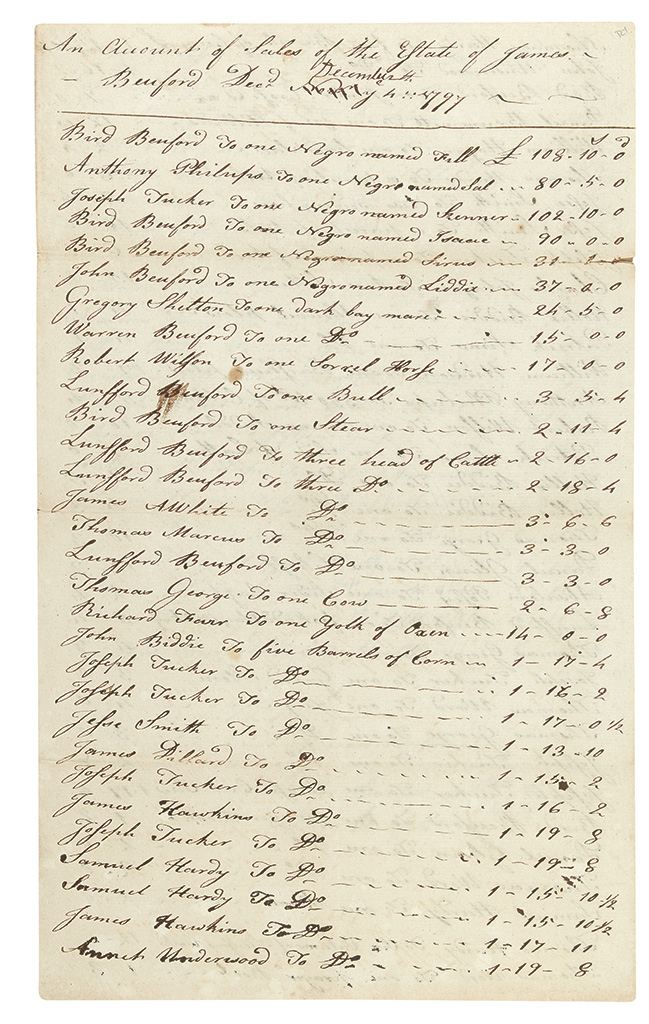 An Account of Sales of the Estate of James
Beuford Decd December ye 4th 1797
s d
Bird Beuford To one Negro named Fell £ 108-10-0
Anthony Philups To one Negro named Sal 80-5-0
Joseph Tucker To one Negro named Skenner 102-10-0
Bird Beuford To one Negro named Isaac 90-0-0
Bird Beuford To one Negro named Sirus 31-1-0
John Beuford To one Negro named Liddie 37-0-0
Gregory Shelton To one dark bay mare 24-5-0
Warren Beuford To one Do 15-0-0
Robert Wilson To one Sorrel Horse 17-0-0
Lunsford Beuford To one Bull 3-5-4
Bird Beuford To one Stear 2-11-4
Lunsford Beuford To three head of Cattle 2-16-0
Lunsford Beuford To three Do 2-18-4
James AWhite To Do 3-6-6
Thomas Marcus To Do 3-3-0
Lunsford Beuford To Do 3-3-0
Thomas George To one Cow 2-6-8
Richard Farr To one Yolk of Oxen 14-0-0
John Biddie To five Barrels of Corn 1-17-4
Joseph Tucker To Do 1-16-2
Joseph Tucker To Do 1-17-0 1/2
Jesse Smith To Do 1-13-10
James Dillard To Do 1-15-2
Joseph Tucker To Do 1-16-2
James Hawkins To Do 1-19-8
Joseph Tucker To Do 1-19-8
Samuel Hardy To Do 1-15-10 1/2
Samuel Hardy To Do 1-15-10 1/2
James Hawkins To Do 1-17-11
Annet Underwood To Do 1-19-8